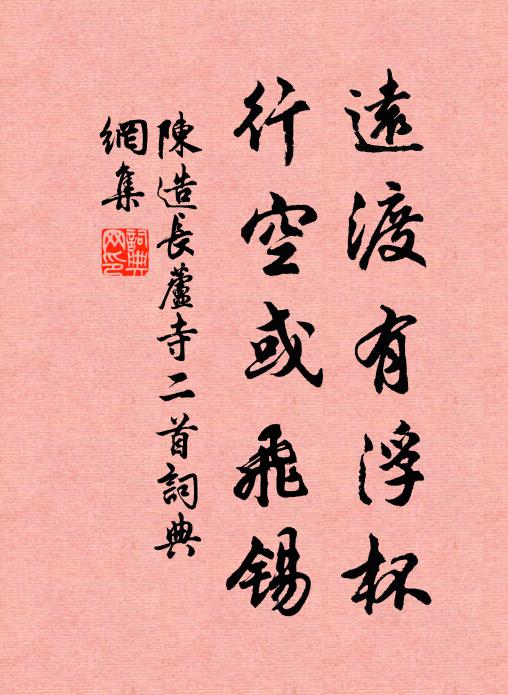 遠渡有浮杯
行空或飛錫
陳造長蘆寺二首詞典
網集
詞典網印